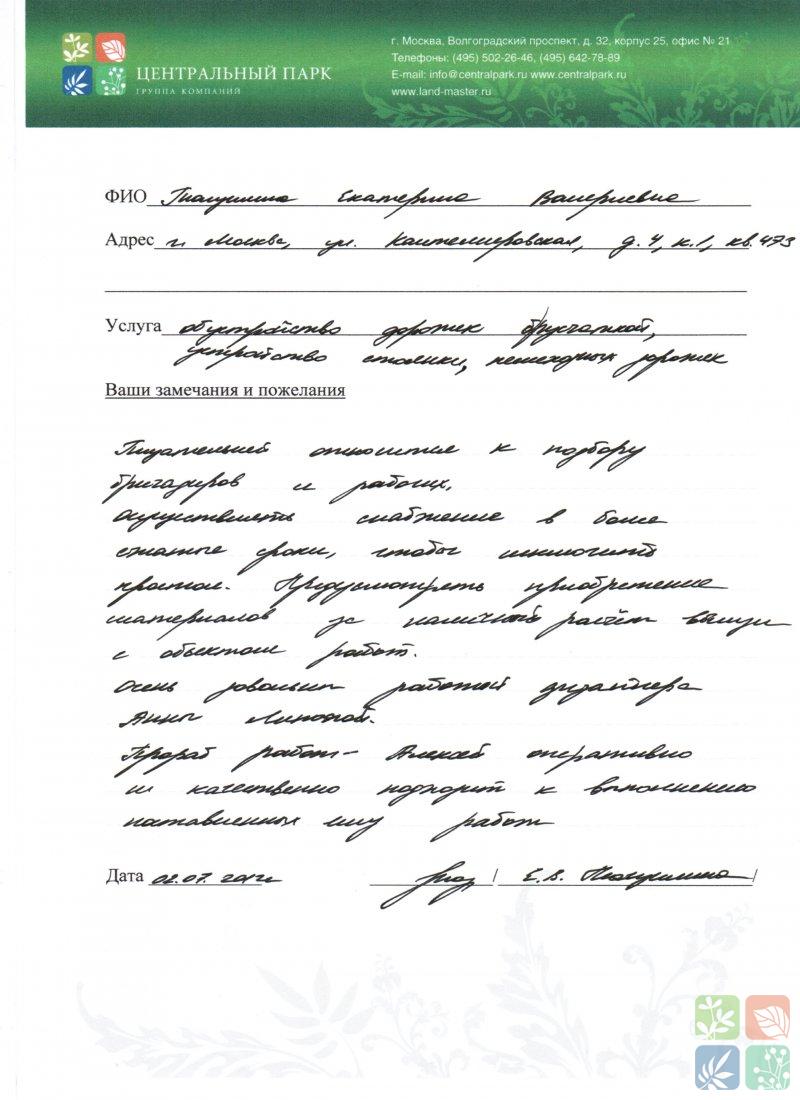 г. Москва, Волгоградский проспект, д. 32, корпус 25, офис № 21
Телефоны: (495) 502-26-46, (495) 642-78-89
E-mail: info@centralpark.ru www.centralpark.ru
www.land-master.ru
ЦЕНТРАЛЬНЫЙ ПАРК
ГРУППА КОМПАНИЙ
ФИО Екатерина Валериевна
Адрес г. Москва, ул. Кантемировская, д. 4, к.1, кв. 473
Услуга обустройство дорожек брусчаткой,
устройство стоянки, пешеходных дорожек
Ваши замечания и пожелания
Тщательней относится к подбору
бригадиров и рабочих,
осуществлять снабжение в более
сжатые сроки, чтобы исключить
простои. Предусмотреть приобретение
материалов за наличный расчёт вблизи
с объектом работ.
Очень довольны работой дизайнера
Анны
Прораб работ - Алексей оперативно
и качественно подходит к выполнению
поставленных ему работ
Дата 02.07.2012г / Е.В. /